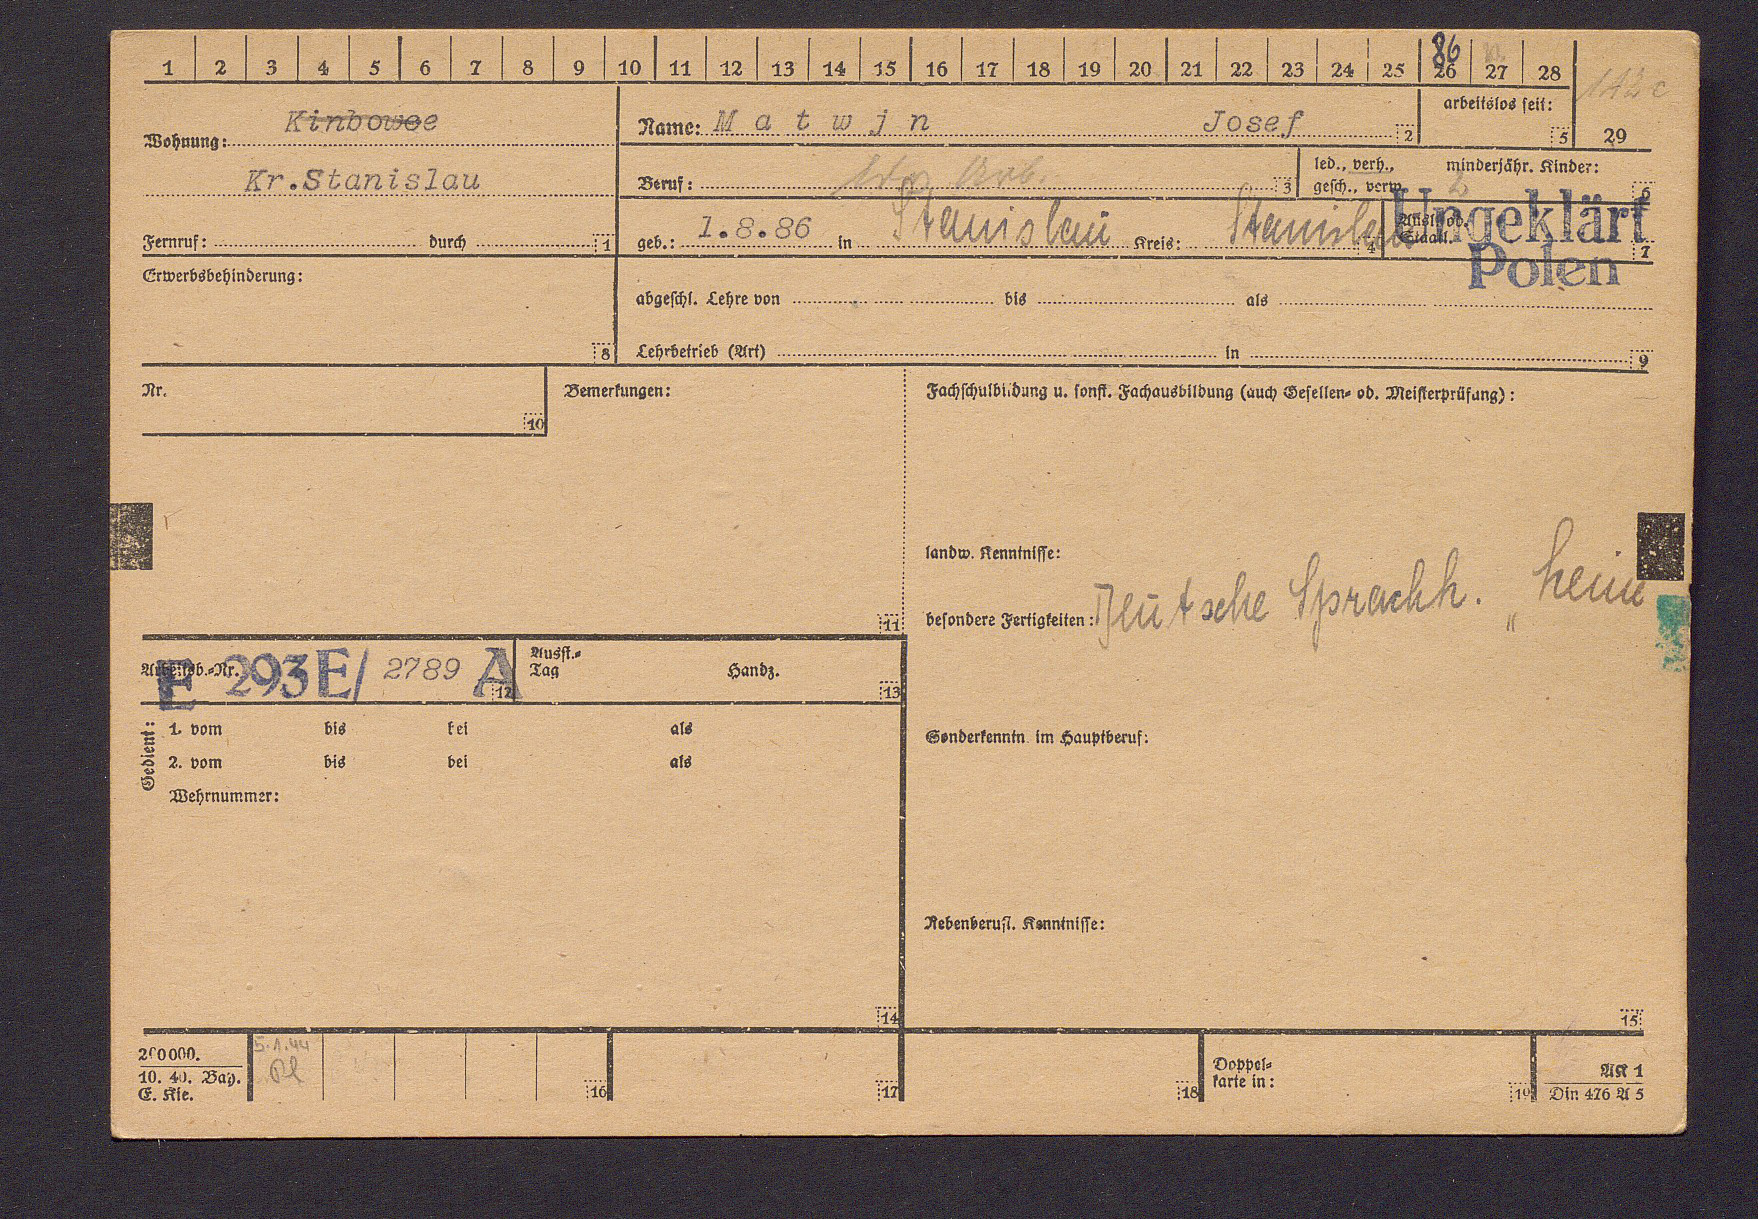 1 2 3 4 5 6 7 8 9 10 11 12 13 14 15 16 17 18 19 20 21 22 23 24 25 26 27 28
86
142 c
29
Wohnung: Kinbowoe
Kr.Stanislau
Fernruf: durch 1
Name: Matwjn Josef 2
arbeitslos seit: 5
Beruf: Arb. 3
led., verh., gesch., verw. minderjähr. Kinder: 2 6
geb.: 1.8.86 in Stanislau Kreis: Stanislau 4
Ausl. od. Staatl. 7
Ungeklärt
Polen
Erwerbsbehinderung: 8
abgeschl. Lehre von bis als
Lehrbetrieb (Art) in 9
Nr. 10
Bemerkungen: 11
Fachschulbildung u. sonst. Fachausbildung (auch Gesellen- od. Meisterprüfung):
landw. Kenntnisse:
besondere Fertigkeiten: Deutsche Sprachk. "keine
Arbeitsb.-Nr. E 293E/ 2789 A 12
Ausst.-Tag Handz. 13
Gedient:
1. vom bis bei als
2. vom bis bei als
Wehrnummer:
14
Sonderkenntn. im Hauptberuf:
Nebenberufl. Kenntnisse:
15
200000.
10. 40. Bay.
E. Kle.
5.1.44
16
17
18
Doppelkarte in: 19
AK 1
Din 476 A 5